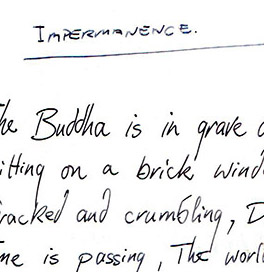 IMPERMANENCE.
The Buddha is in grave
itting on a brick wind
racked and crumbling, D
me is passing, The worl